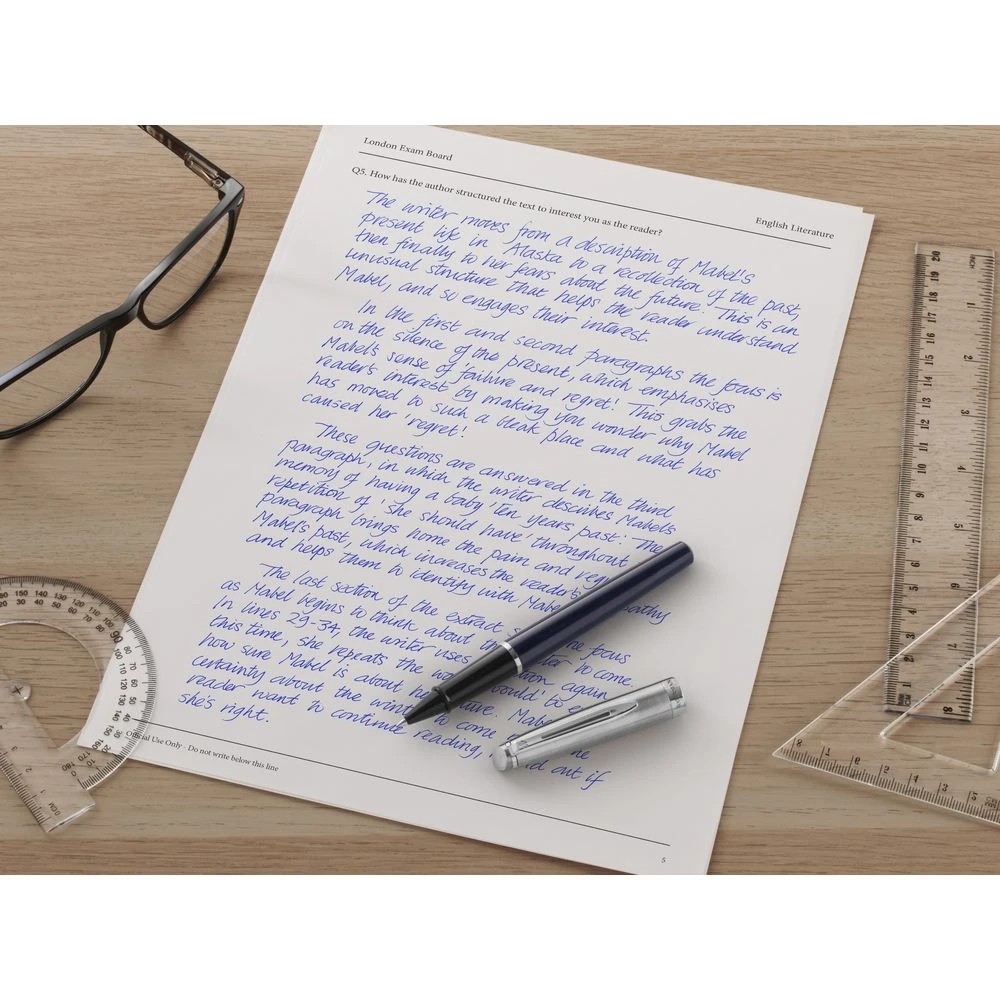 London Exam Board
English Literature
Q5. How has the author structured the text to interest you as the reader?
The writer moves from a description of Mabel's
present life in Alaska to a recollection of the past,
then finally to her fears about the future. This is an
unusual structure that helps the reader understand
Mabel, and so engages their interest.
In the first and second paragraphs the focus is
on the silence of the present, which emphasises
Mabel's sense of 'failure and regret'. This grabs the
reader's interest by making you wonder why Mabel
has moved to such a bleak place and what has
caused her 'regret'.
These questions are answered in the third
paragraph, in which the writer describes Mabel's
memory of having a baby 'ten years past'. The
repetition of 'she should have' throughout
paragraph brings home the pain and
Mabel's past, which increases the reader's
and helps them to identify with
The last section of the extract focus
as Mabel begins to think about the to come.
In lines 29-34, the writer uses again
this time, she repeats the would' to
how sure Mabel is about
certainty about the to come
reader want to continue reading, out if
she's right.
Official Use Only - Do not write below this line
5
20 19 18 17 16 15 14 13 12 11 10 9 8 7 6 5 4 3 2 1
INCH
1 2 3 4 5 6 7 8